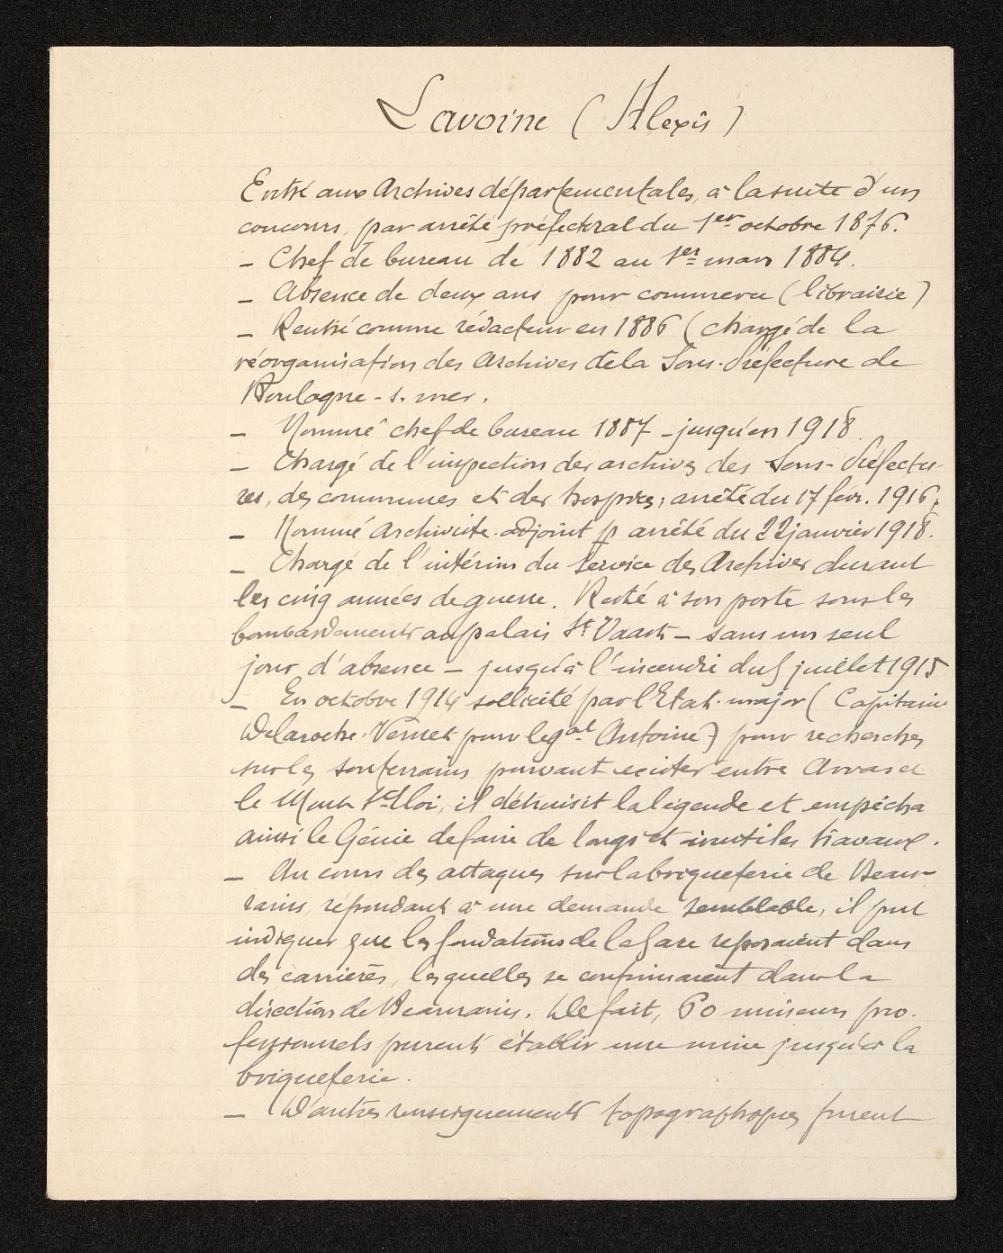 Lavoine (Alexis)
Entré aux Archives départementales, à la suite d'un
concours, par arrêté préfectoral du 1er octobre 1876.
— Chef de bureau de 1882 au 1er mars 1884.
— Absence de deux ans pour commerce (librairie)
— Rentré comme rédacteur en 1886 (chargé de la
réorganisation des Archives de la Sous-Préfecture de
Boulogne-s.mer.
— Nommé chef de bureau 1887 — jusqu'en 1918.
— Chargé de l'inspection des archives des Sous-Préfectu-
res, des communes et des hospices, arrêté du 17 févr. 1916.
— Nommé Archiviste-adjoint p arrêté du 22 janvier 1918.
— Chargé de l'intérim du Service des Archives durant
les cinq années de guerre. Resté à son poste sous les
bombardements au palais St Vaast — sans un seul
jour d'absence — jusqu'à l'incendie du 5 juillet 1915
— En octobre 1914 sollicité par l'Etat-major (Capitaine
Delaroche-Vernet pour le gal Antoine) pour recherches
sur les souterrains pouvant exister entre Arras et
le Mont St Eloi, il détruisit la légende et empêcha
ainsi le Génie de faire de longs et inutiles travaux.
— Au cours des attaques sur la briqueterie de Beau-
rains, répondant à une demande semblable, il put
indiquer que les fondations de la gare reposaient dans
des carrières, lesquelles se continuaient dans la
direction de Beaurains. De fait, 60 mineurs pro-
fessionnels purent établir une mine jusqu'à la
briqueterie.
— D'autres renseignements topographiques furent